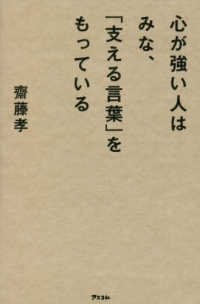 心が強い人は
みな、
「支える言葉」を
もっている
齋藤孝
アスコム